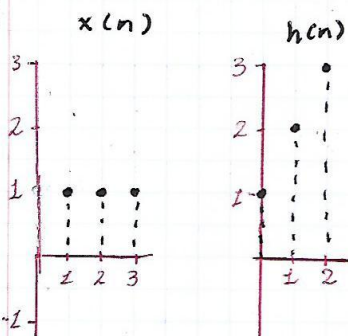 x(n)
3
2
1
1 2 3
-1
h(n)
3
2
1
1 2